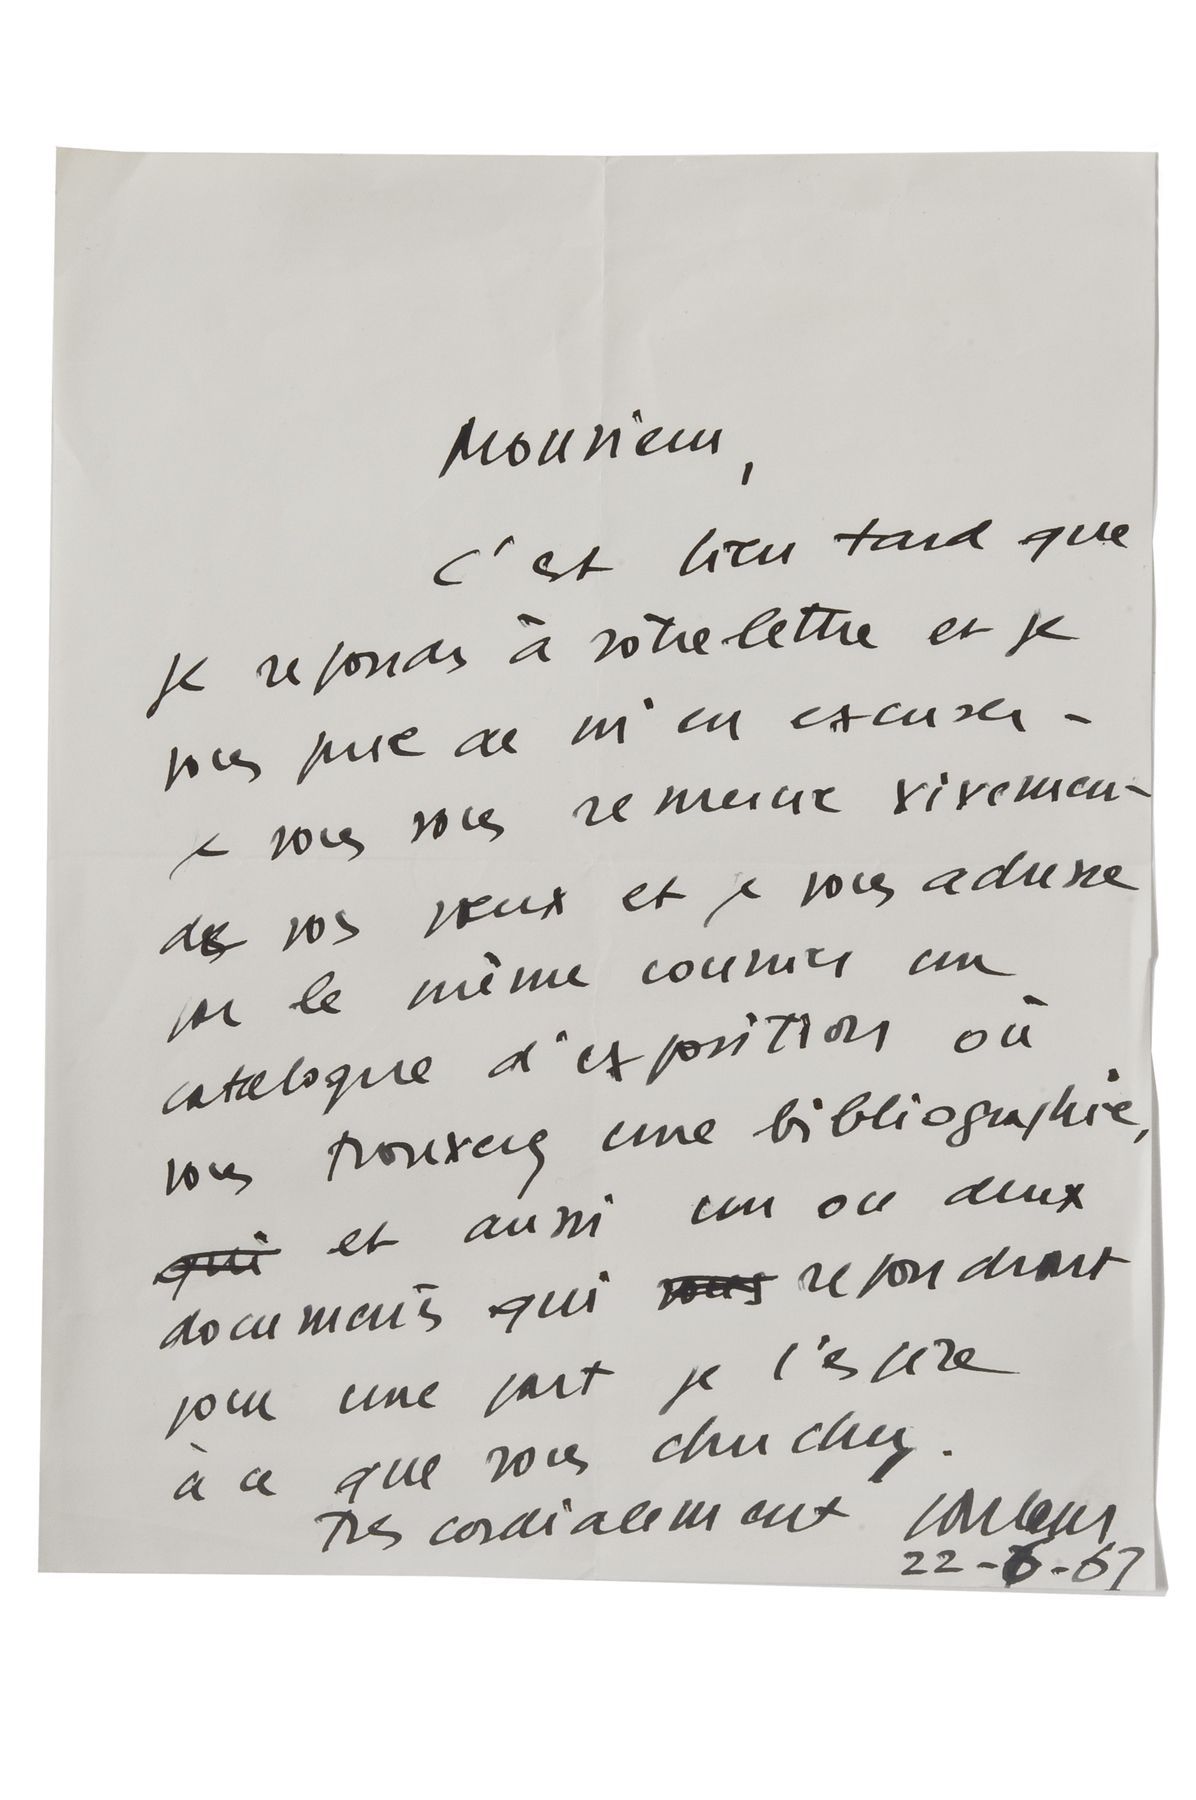 Monsieur,
C'est bien tard que
je reponds à vôtre lettre et je
vous prie de m'en excuser -
je vous vous remercie vivement
de vos vœux et je vous adresse
par le même courrier un
catalogue d'exposition où
vous trouverez une bibliographie,
qui et aussi un ou deux
documents qui vous repondront
pour une part je l'espère
à ce que vous cherchez.
Tres cordialement
22-6-67